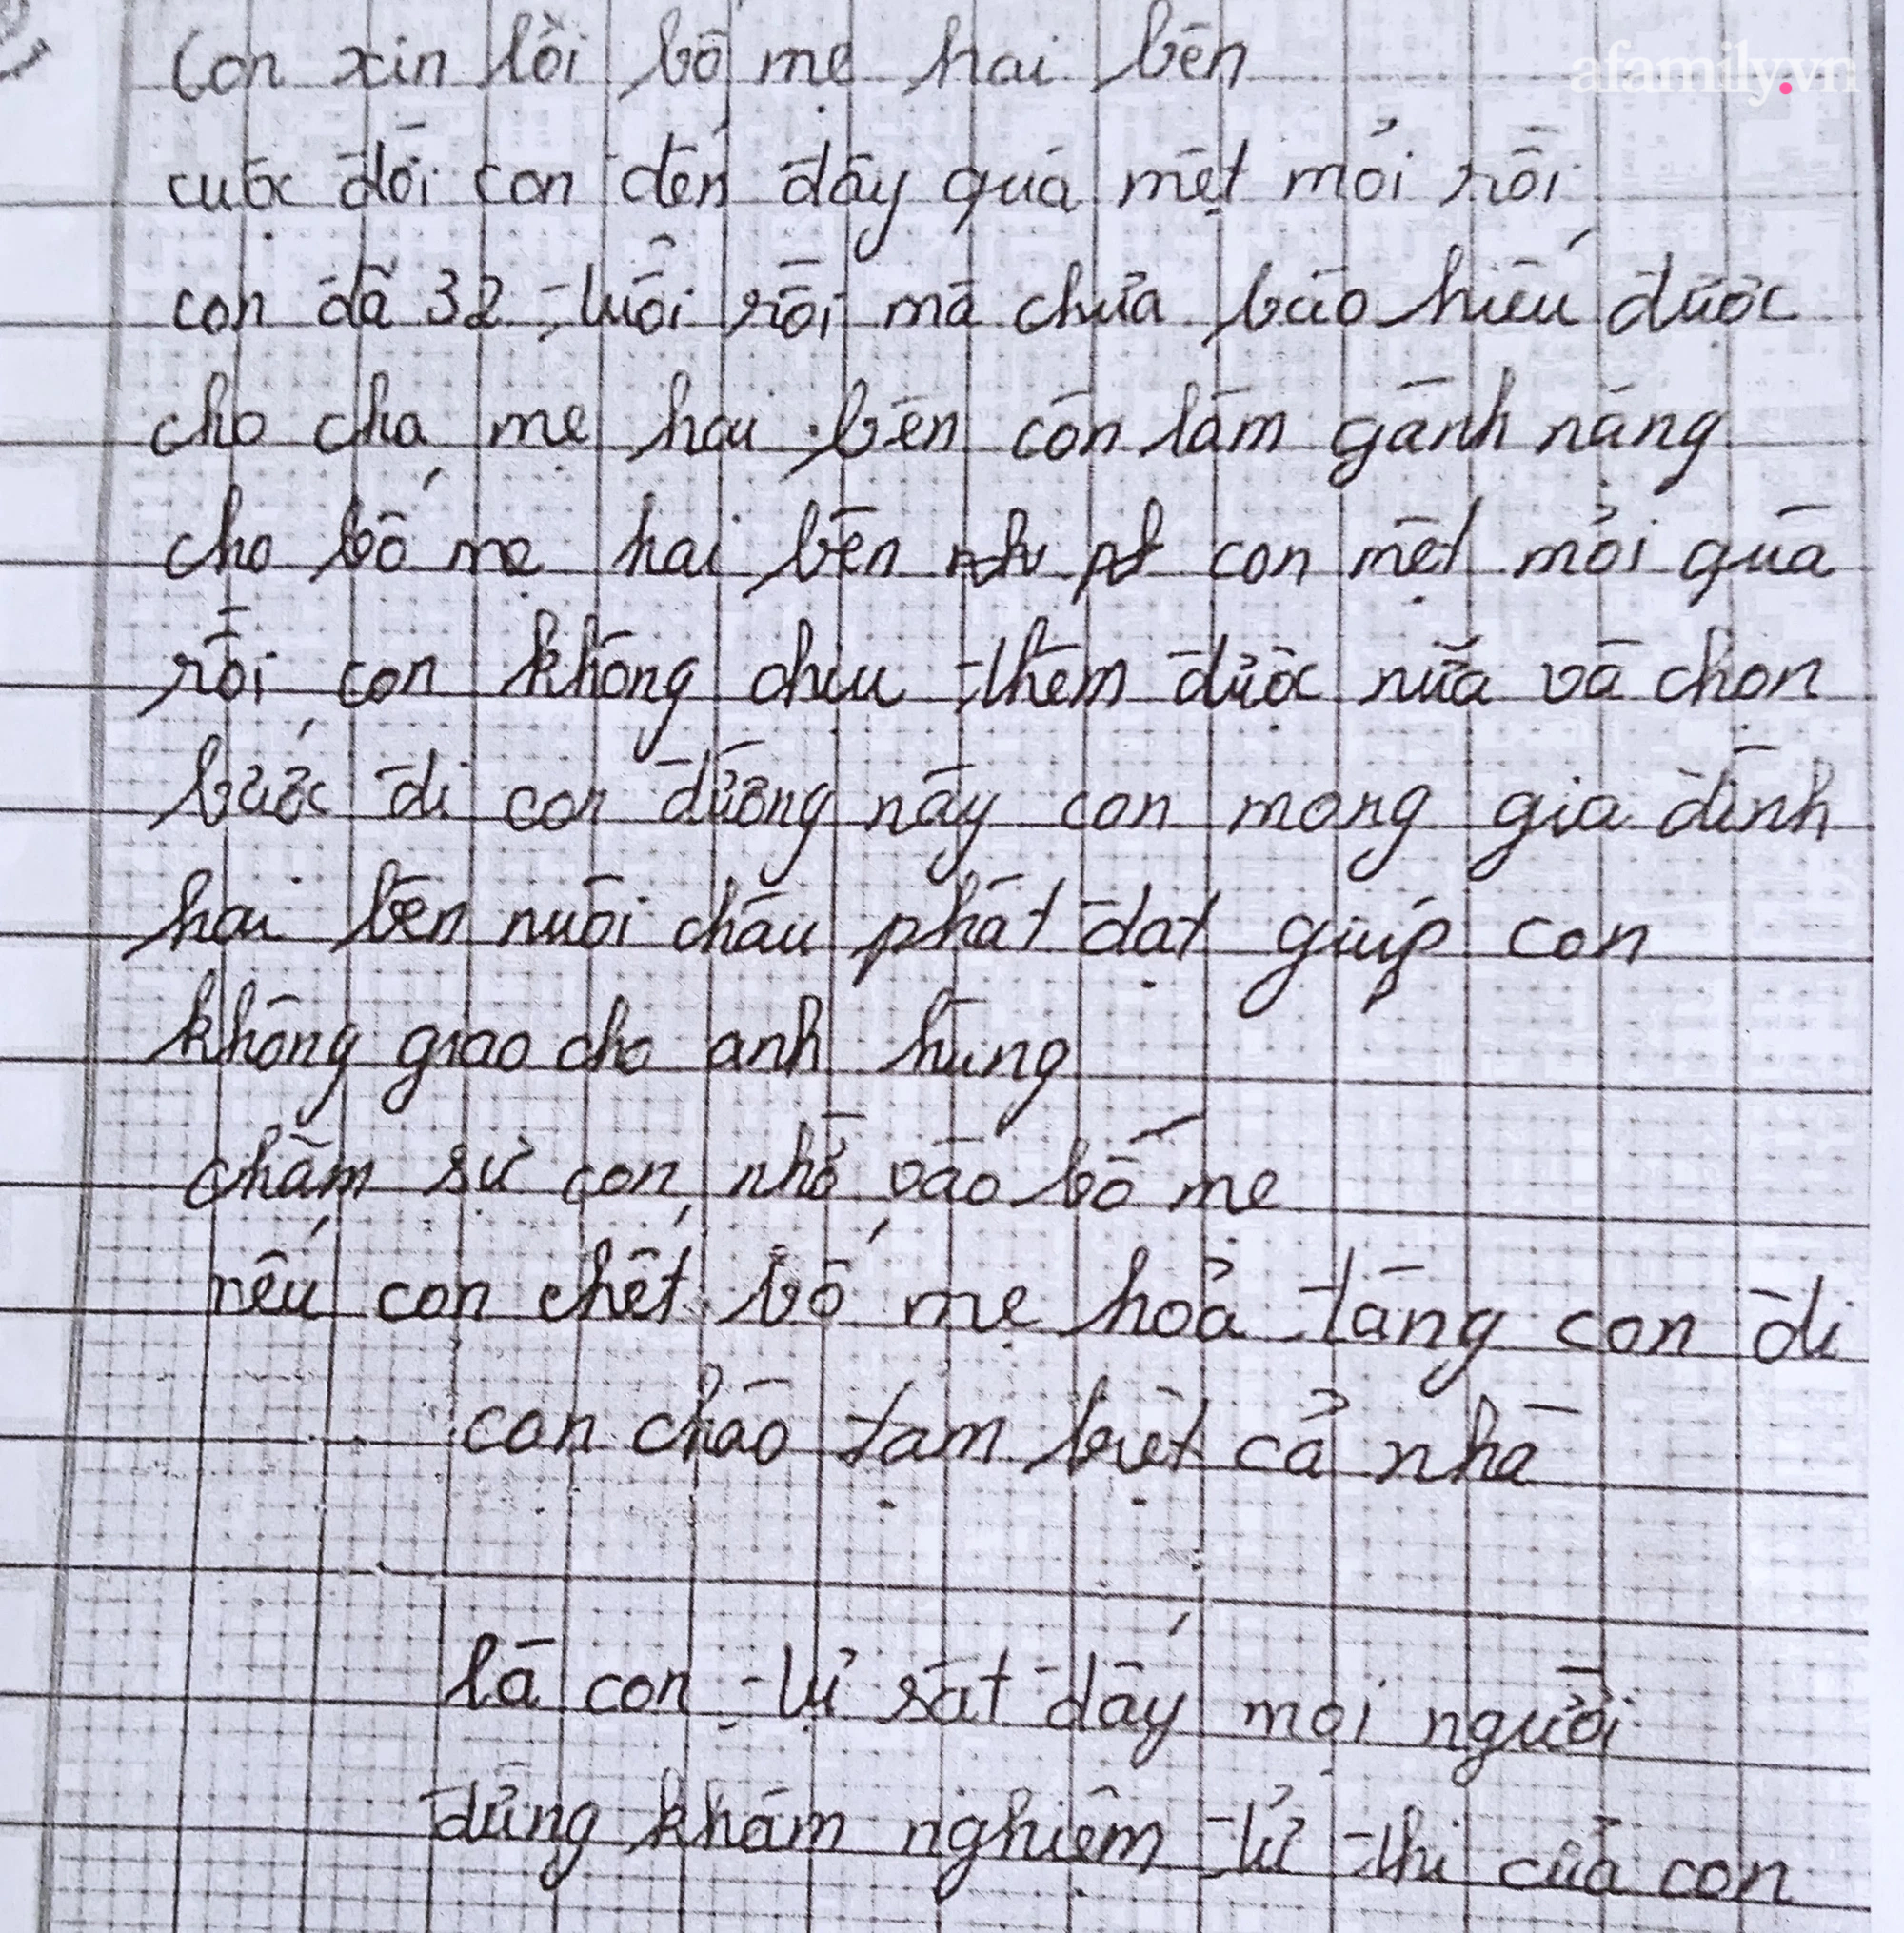 afamily.vn
Con xin lỗi bố mẹ hai bên
cuộc đời con đến đây quá mệt mỏi rồi
con đã 32 tuổi rồi mà chưa báo hiếu được
cho cha mẹ hai bên còn làm gánh nặng
cho bố mẹ hai bên con mệt mỏi quá
rồi con không chịu thêm được nữa và chọn
bước đi con đường này con mong gia đình
hai bên nuôi cháu phát đạt giúp con
không giao cho anh hùng
chăm sự con nhờ vào bố mẹ
nếu con chết bố mẹ hoả táng con đi
con chào tạm biệt cả nhà
là con tự sát đấy mọi người
đừng khám nghiệm tử thi của con